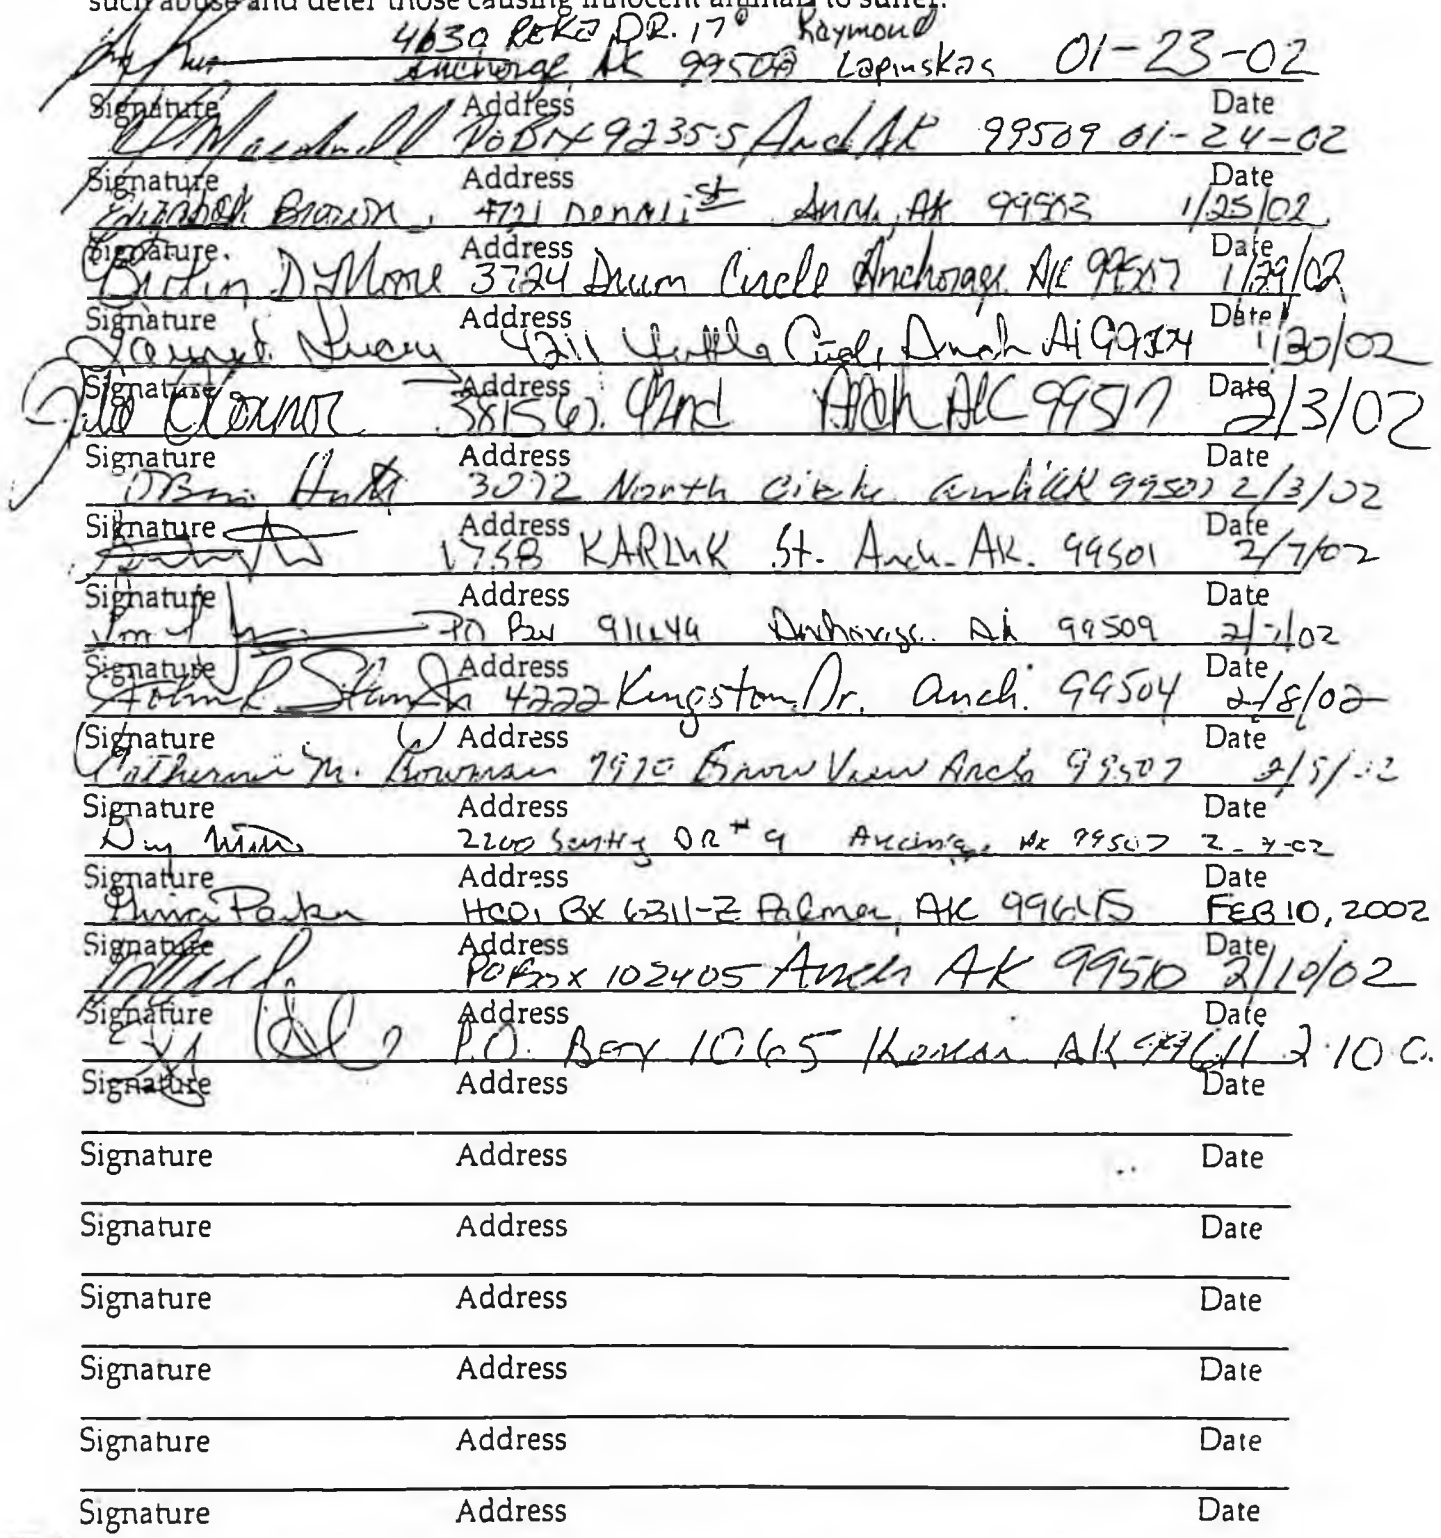 such abuse and deter those causing innocent animals to suffer.
4630 REKA DR. 17 Raymond
Anchorge AK 99508 Lapinskas 01-23-02
Signature Address Date
PO BX 92355 Anch AK 99509 01-24-02
Signature Address Date
Elizabeth Brown 4721 Denali St Anch, AK 99503 1/25/02
Signature Address Date
D Moore 3724 Drum Circle Anchorage AK 99507 1/29/02
Signature Address Date
4211 Circle, Anch Ak 99504 1/30/02
Signature Address Date
O'Connor 3815 W. 42nd Anch AK 99517 2/3/02
Signature Address Date
3072 North Circle Anch AK 99507 2/3/02
Signature Address Date
1758 KARLUK St. Anch. AK. 99501 2/7/02
Signature Address Date
PO Box Anchorage Ak 99509 2/7/02
Signature Address Date
John 4222 Kingston Dr. Anch. 99504 2/8/02
Signature Address Date
Catherine M. Bowman 7970 Snow View Anch 99507
Signature Address Date
2200 Sentry DR # 9 Anchorage AK 99507
Signature Address Date
Parker HC01 BX 6311-Z Palmer, AK 99645 FEB 10, 2002
Signature Address Date
PO Box 102405 Anch AK 99510 2/10/02
Signature Address Date
P.O. Box 1065 Kenai AK 99611 2.10 0.
Signature Address Date
Signature Address Date
Signature Address Date
Signature Address Date
Signature Address Date
Signature Address Date
Signature Address Date